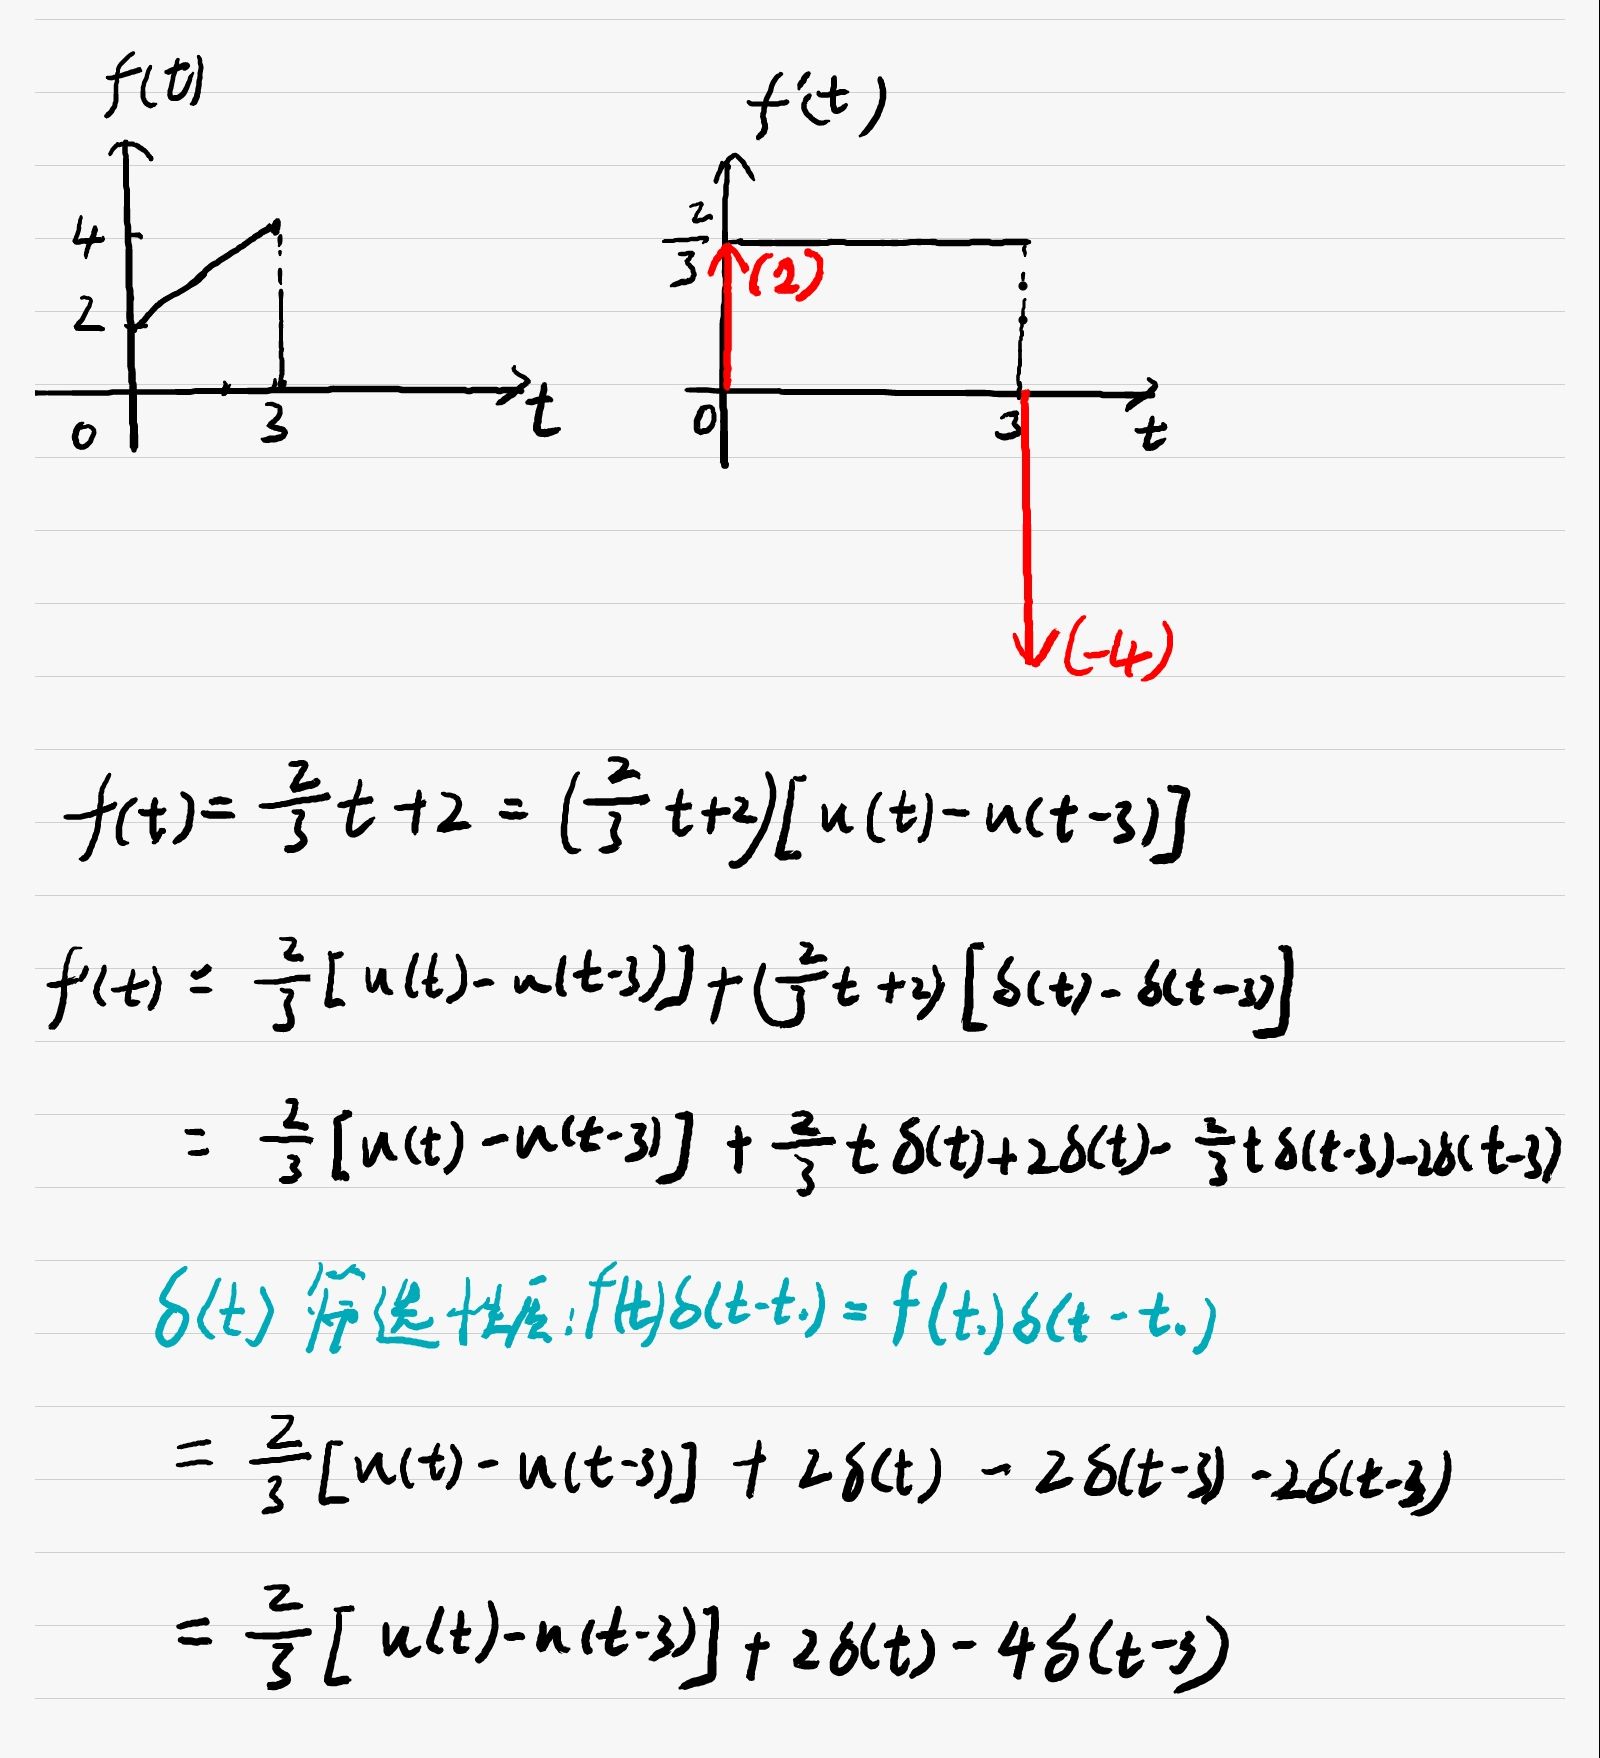 f(t)
4
2
0
3
t
f'(t)
2/3
(2)
0
3
t
(-4)
f(t) = 2/3 t + 2 = (2/3 t+2)[u(t) - u(t-3)]
f'(t) = 2/3 [u(t) - u(t-3)] + (2/3 t + 2) [δ(t) - δ(t-3)]
= 2/3 [u(t) - u(t-3)] + 2/3 t δ(t) + 2δ(t) - 2/3 t δ(t-3) - 2δ(t-3)
δ(t) 筛选性质: f(t)δ(t-t₀) = f(t₀)δ(t-t₀)
= 2/3 [u(t) - u(t-3)] + 2δ(t) - 2δ(t-3) - 2δ(t-3)
= 2/3 [u(t) - u(t-3)] + 2δ(t) - 4δ(t-3)